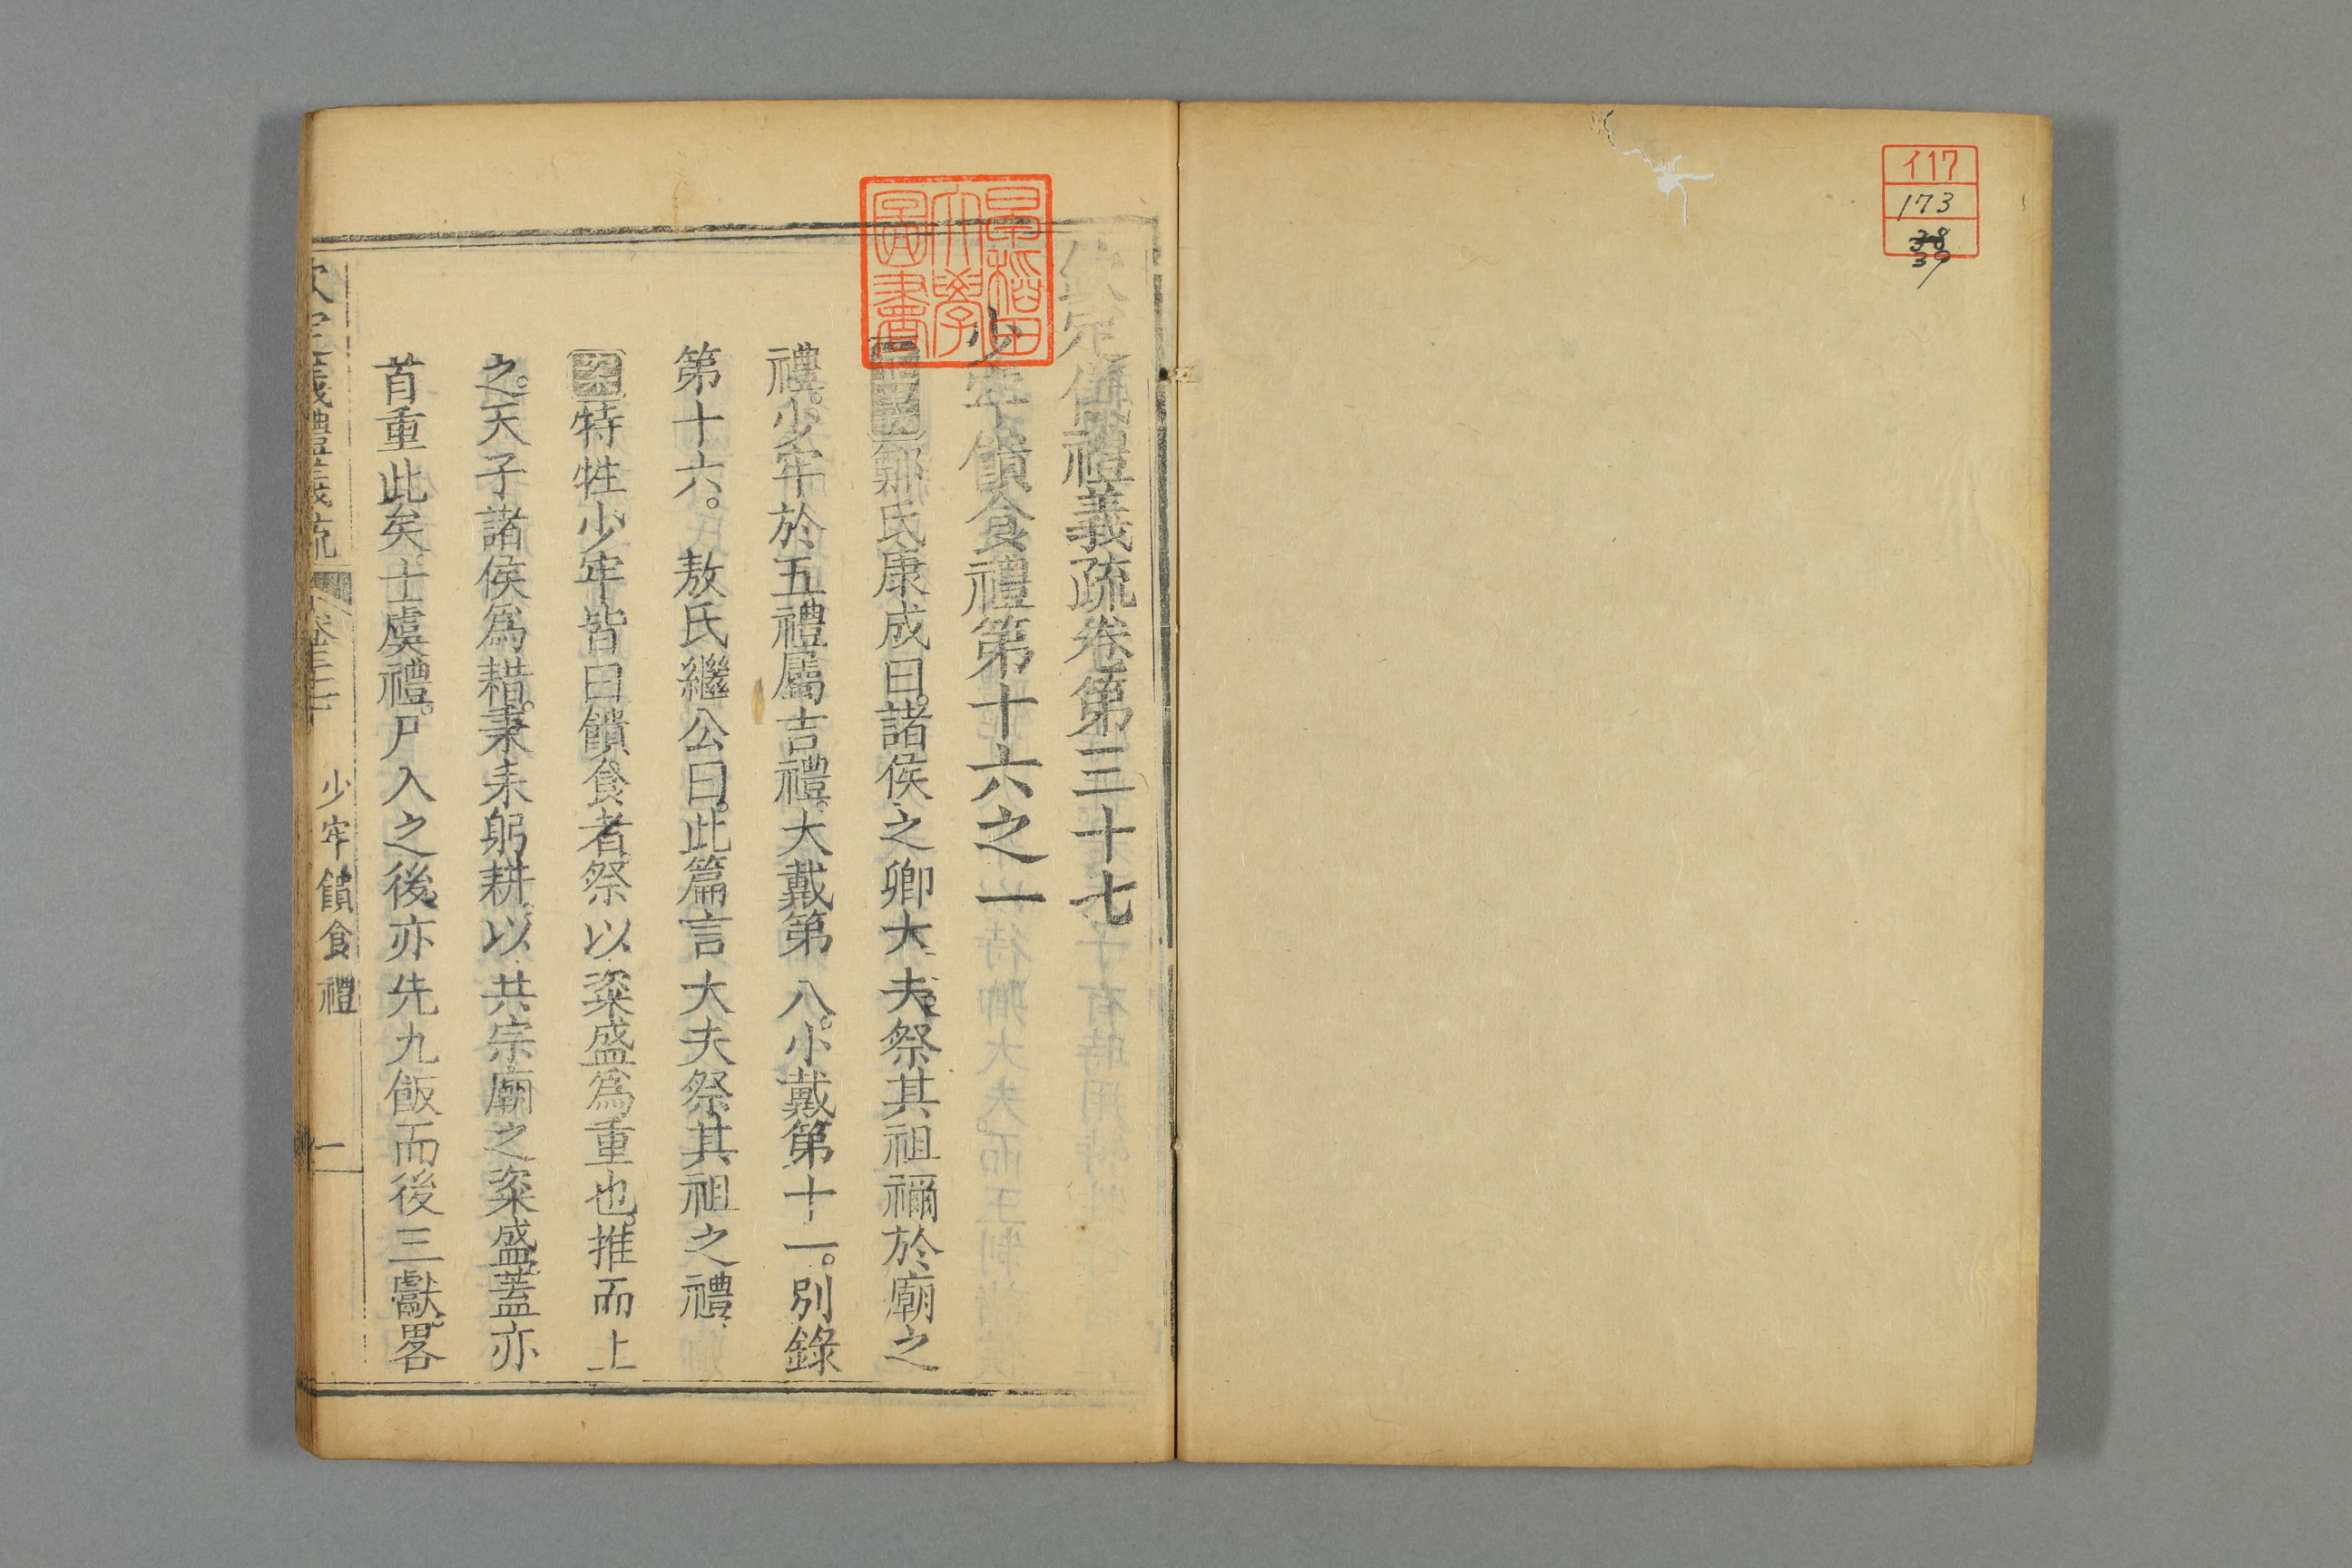 イ17
173
38
39
早稲田大學圖書
欽定儀禮義疏卷第三十七
少牢饋食禮第十六之一
正義鄭氏康成曰。諸侯之卿大夫。祭其祖禰於廟之
禮。少牢於五禮屬吉禮。大戴第八。小戴第十一。別錄
第十六。 敖氏繼公曰。此篇言大夫祭其祖之禮、
案特牲少牢皆曰饋食者。祭以粢盛爲重也。推而上
之。天子諸侯爲耤。秉耒躬耕。以共宗廟之粢盛。蓋亦
首重此矣。士虞禮。尸入之後。亦先九飯而後三獻。畧
欽定儀禮義疏 卷三十七 少牢饋食禮 一